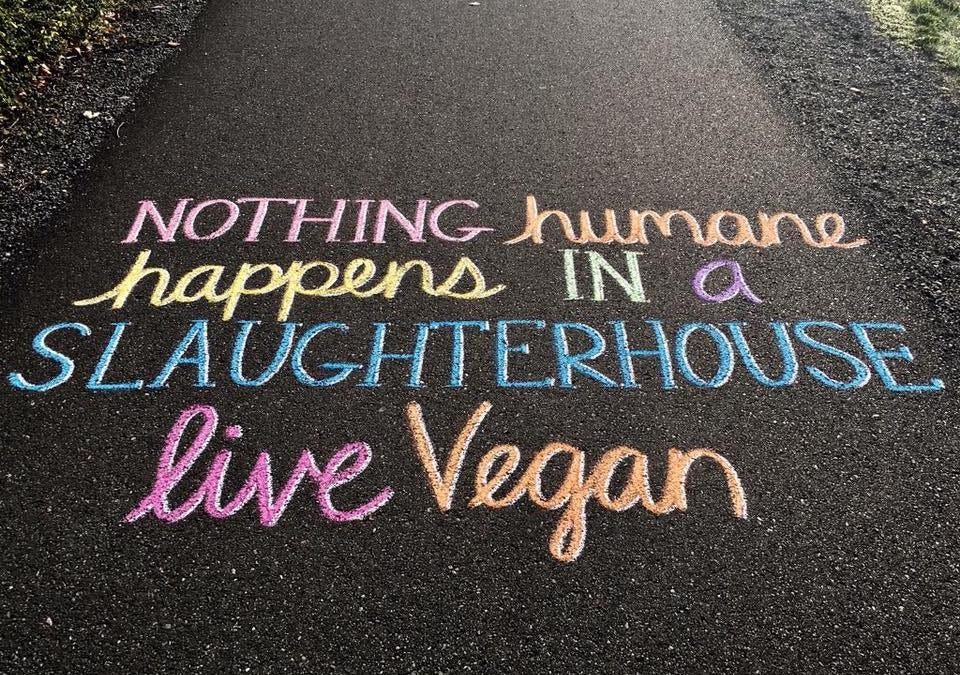 NOTHING humane
happens IN a
SLAUGHTERHOUSE
live Vegan